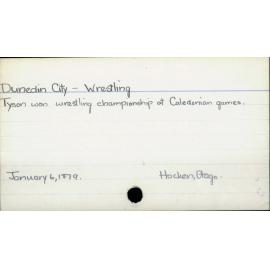 Dunedin City - Wrestling
Tyson won wrestling championship at Caledonian games.
January 6, 1879. Hocken, Otago.